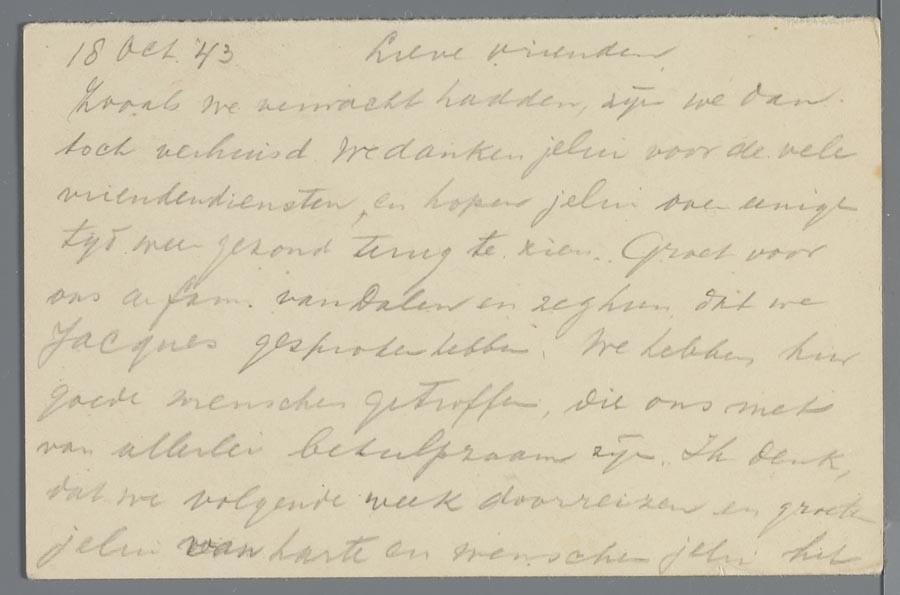 18 Oct. '43 Lieve vrienden
Zooals we verwacht hadden, zijn we dan
toch verhuisd. We danken jelui voor de vele
vriendendiensten, en hopen jelui over eenige
tijd weer gezond terug te zien. Groet voor
ons de fam. van Dalen en zeg hun dat we
Jacques gesproken hebben. We hebben hier
goede menschen getroffen, die ons met
van allerlei behulpzaam zijn. Ik denk,
dat we volgende week doorreizen en groeten
jelui van harte en wenschen jelui het